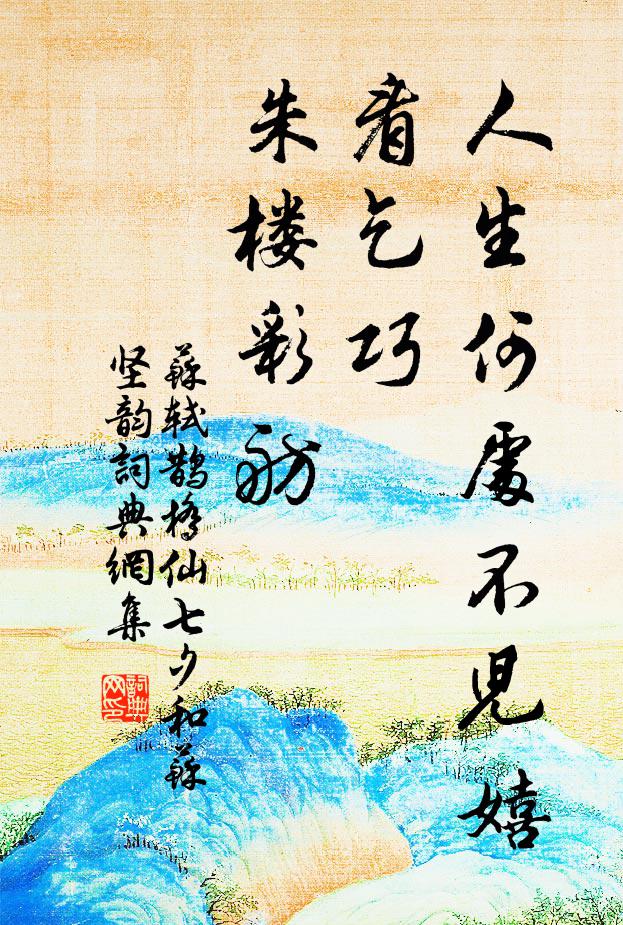 人生何處不兒嬉
看乞巧
朱楼彩舫
蘇轼鵲橋仙七夕和蘇
坚韵詞典網集
詞典
网印